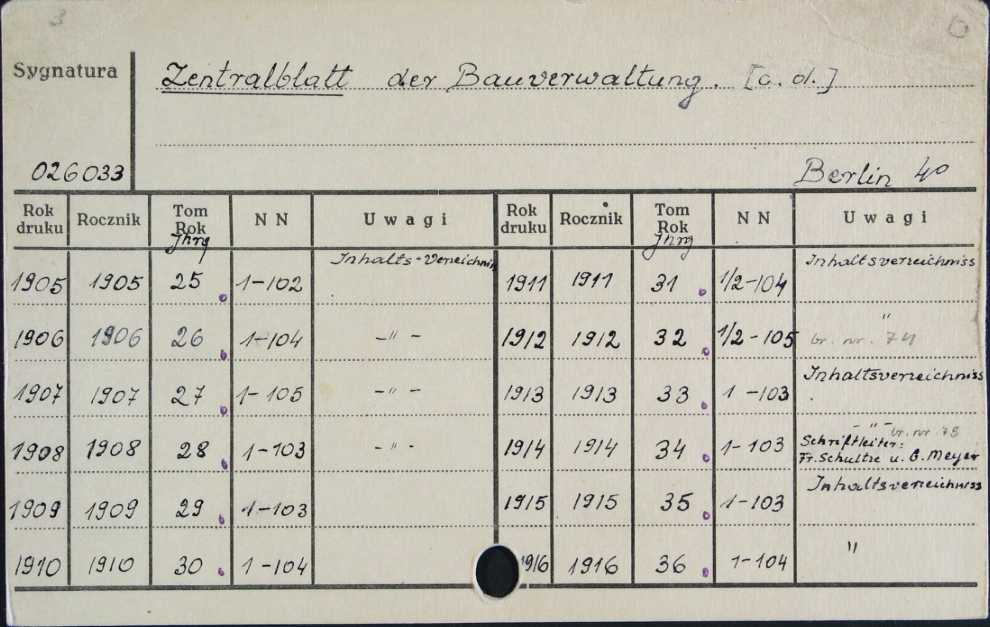 3
Sygnatura
Zentralblatt der Bauverwaltung. [c.d.]
026033
Berlin 40
Rok druku | Rocznik | Tom Rok Jhrg | NN | Uwagi | Rok druku | Rocznik | Tom Rok Jhrg | NN | Uwagi
1905 | 1905 | 25 | 1-102 | Inhalts-Verzeichnis | 1911 | 1911 | 31 | 1/2-104 | Inhaltsverzeichniss
1906 | 1906 | 26 | 1-104 | -"- | 1912 | 1912 | 32 | 1/2-105 | " br. nr. 74
1907 | 1907 | 27 | 1-105 | -"- | 1913 | 1913 | 33 | 1-103 | Inhaltsverzeichniss
1908 | 1908 | 28 | 1-103 | -"- | 1914 | 1914 | 34 | 1-103 | -"- br. nr 78 Schriftleiter: Fr. Schultze u. G. Meyer
1909 | 1909 | 29 | 1-103 | 1915 | 1915 | 35 | 1-103 | Inhaltsverzeichniss
1910 | 1910 | 30 | 1-104 | 1916 | 1916 | 36 | 1-104 | "